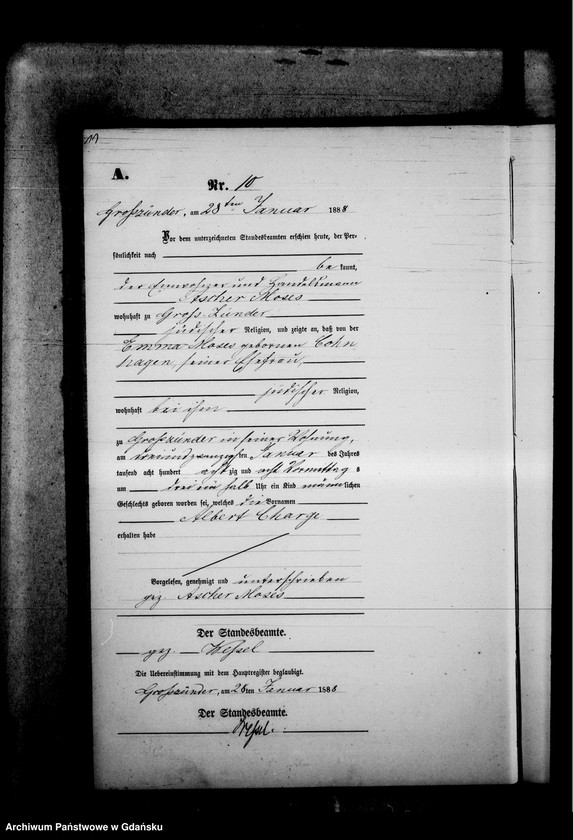 A.
Nr. 10
Grosszünder, am 28ten Januar 1888
Vor dem unterzeichneten Standesbeamten erschien heute, der Per-
sönlichkeit nach
bekannt,
der Einwohner und Handelsmann
Ascher Moses
wohnhaft zu Gross-Zünder
jüdischer Religion, und zeigte an, daß von der
Emma Moses gebornen Cohn
hagen, seiner Ehefrau,
jüdischer Religion,
wohnhaft bei ihm
zu Grosszünder in seiner Wohnung,
am dreiundzwanzigsten Januar des Jahres
tausend acht hundert achtzig und acht Vormittags
um drei ein halb Uhr ein Kind männlichen
Geschlechts geboren worden sei, welches die Vornamen
Albert
erhalten habe
Vorgelesen, genehmigt und unterschrieben
gez. Ascher Moses
Der Standesbeamte.
gez. Wessel
Die Uebereinstimmung mit dem Hauptregister beglaubigt.
Grosszünder, am 28ten Januar 1888
Der Standesbeamte.
Wessel.
Archiwum Państwowe w Gdańsku